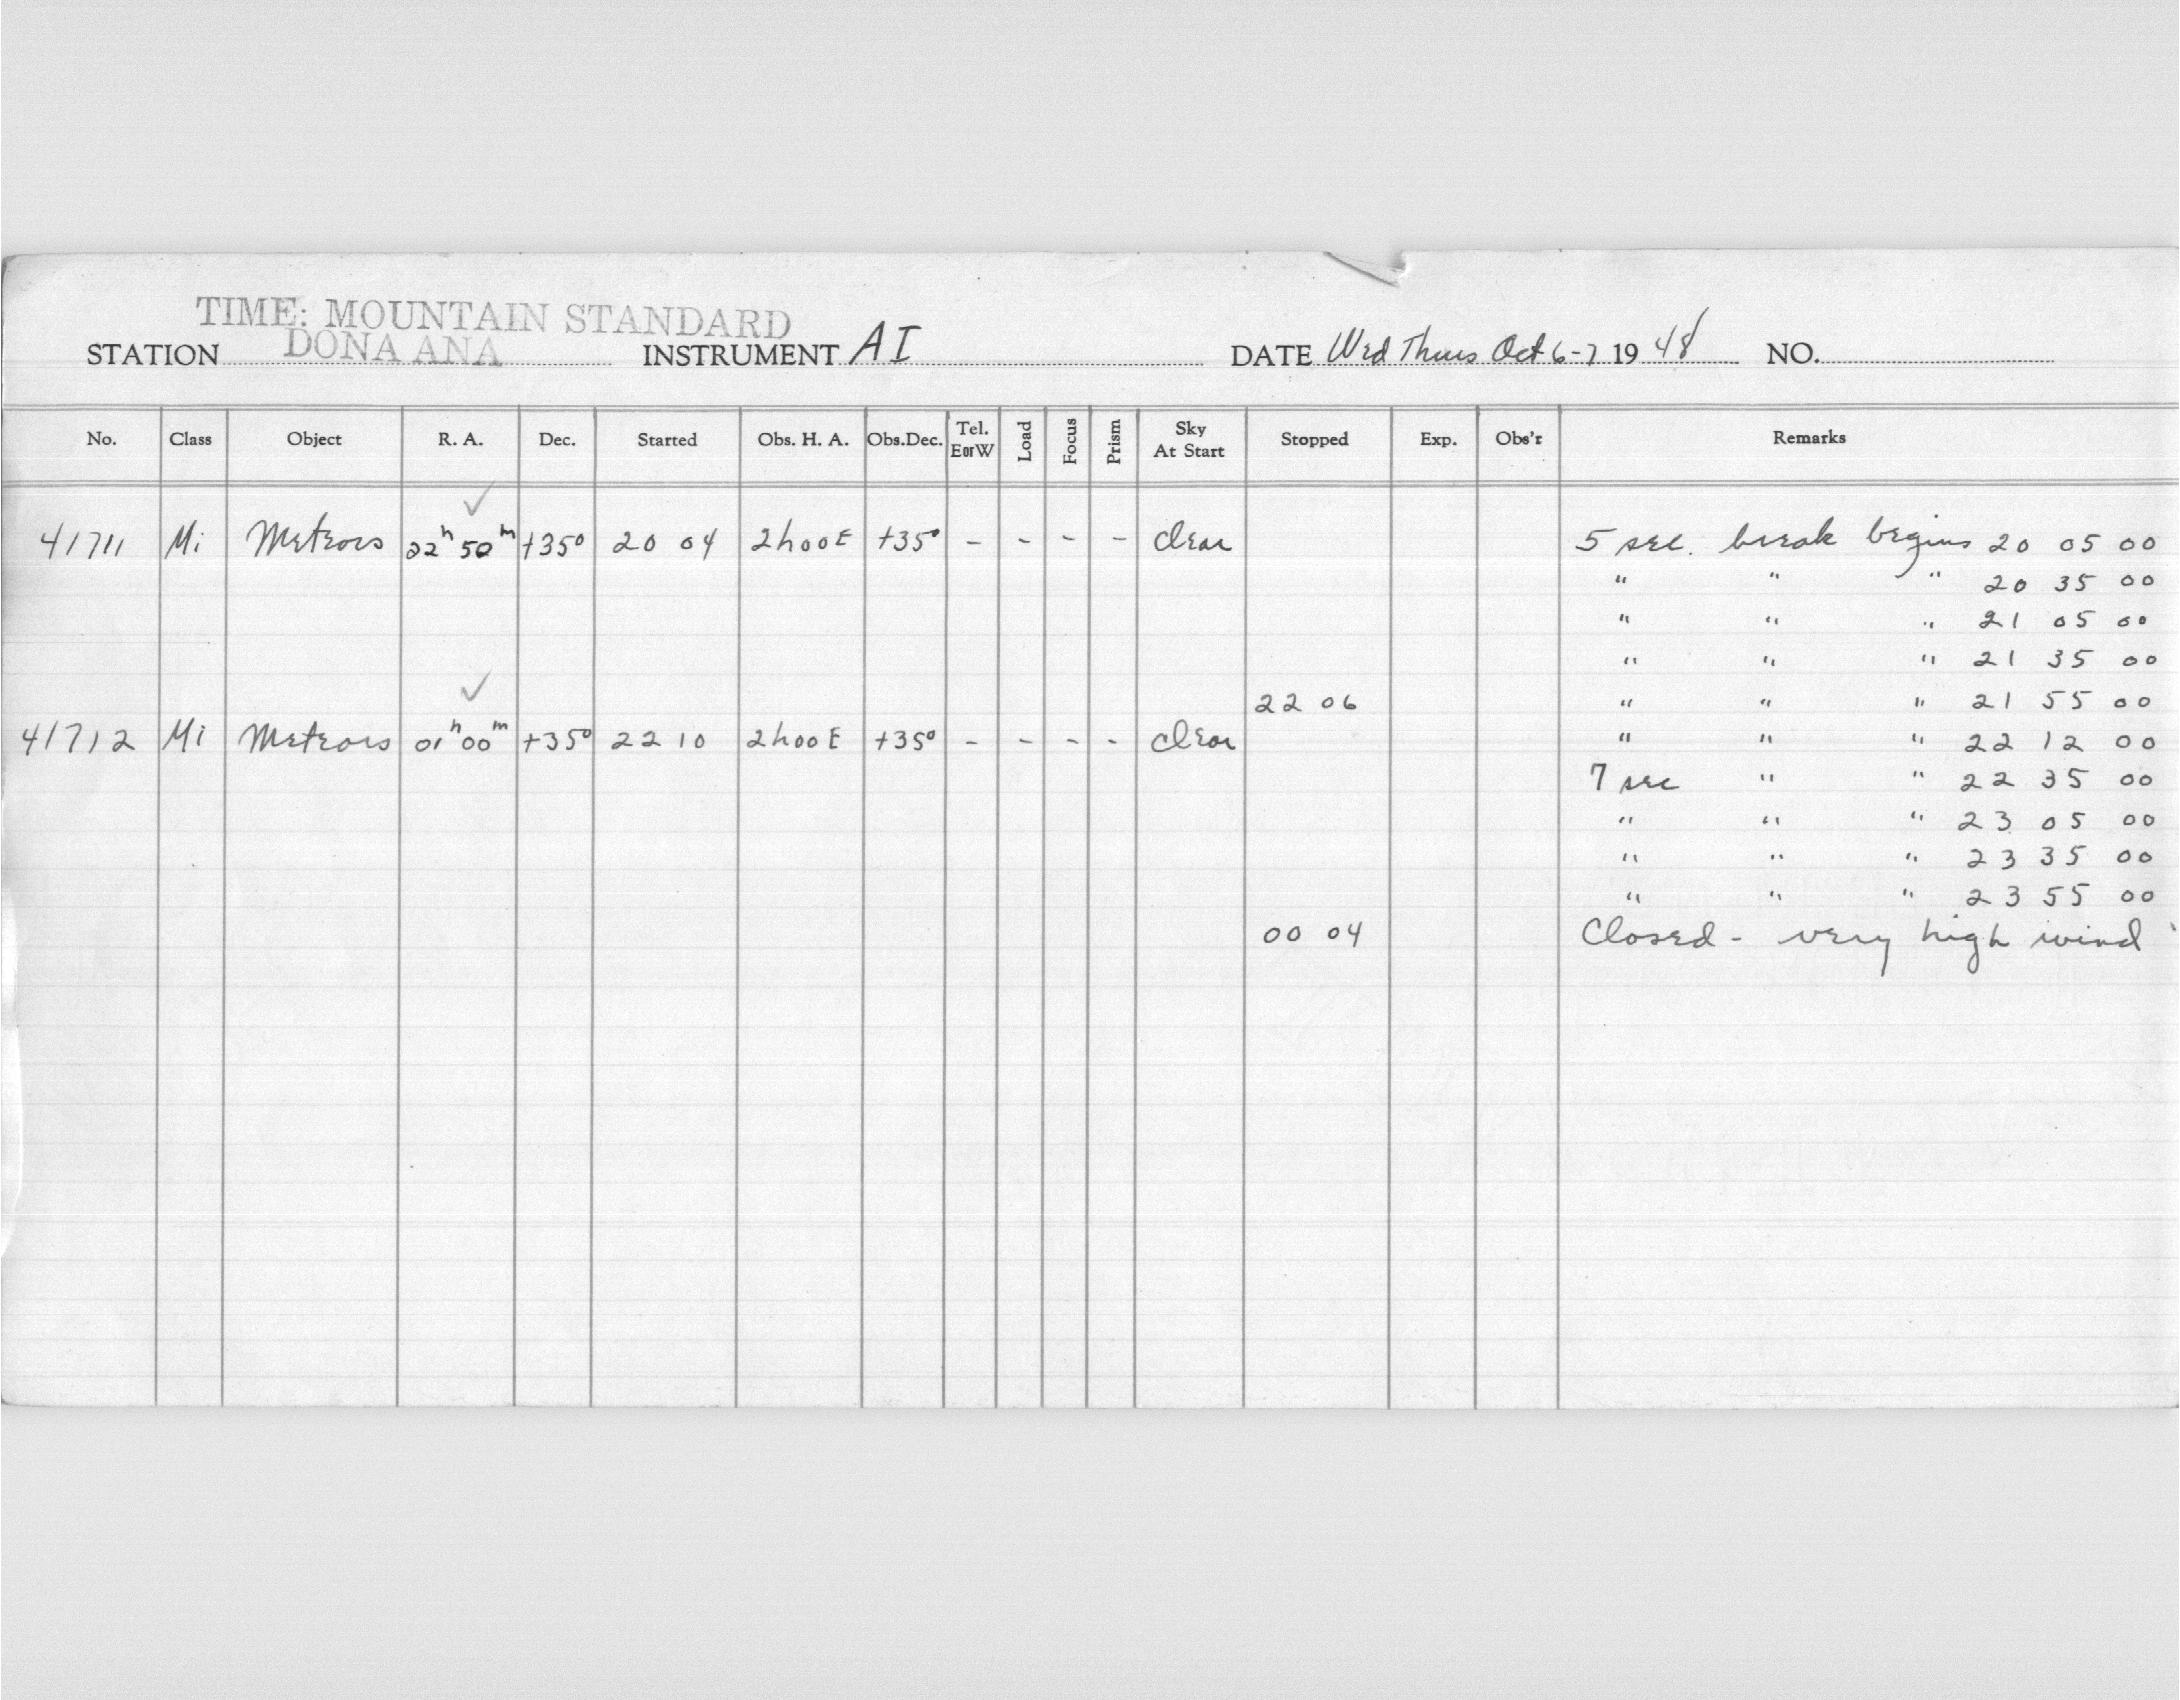 TIME: MOUNTAIN STANDARD
STATION DONA ANA INSTRUMENT AI DATE Wed Thurs Oct 6-7 1948 NO.
No. Class Object R. A. Dec. Started Obs. H. A. Obs.Dec. Tel. EorW Load Focus Prism Sky At Start Stopped Exp. Obs'r Remarks
✓
41711 Mi Meteors 22h 50m +35° 20 04 2h00E +35° - - - - clear 5 sec. break begins 20 05 00
" " " 20 35 00
" " " 21 05 00
" " " 21 35 00
✓ 22 06 " " " 21 55 00
41712 Mi Meteors 01h 00m +35° 22 10 2h00E +35° - - - - clear " " " 22 12 00
7 sec " " 22 35 00
" " " 23 05 00
" " " 23 35 00
" " " 23 55 00
00 04 Closed - very high wind